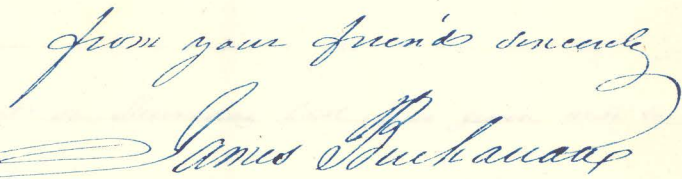 from your friend sincerely
James Buchanan